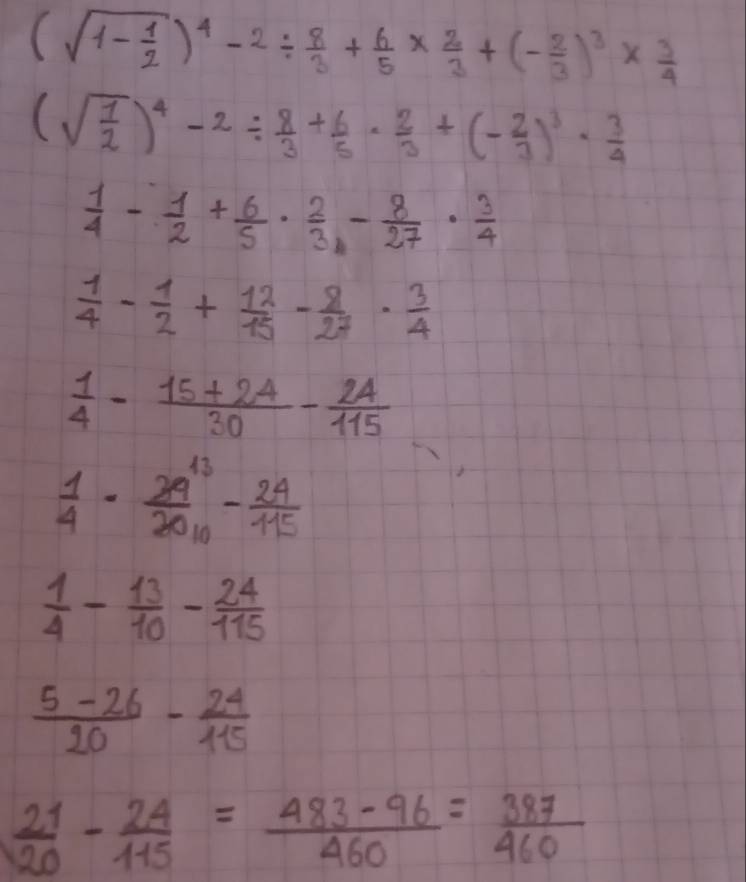 (√(1 - 1/2))⁴ - 2 ÷ 8/3 + 6/5 × 2/3 + (-2/3)³ × 3/4
(√(1/2))⁴ - 2 ÷ 8/3 + 6/5 · 2/3 + (-2/3)³ · 3/4
1/4 - 1/2 + 6/5 · 2/3 - 8/27 · 3/4
1/4 - 1/2 + 12/15 - 8/27 · 3/4
1/4 - (15 + 24)/30 - 24/115
1/4 - 39/30 13/10 - 24/115
1/4 - 13/10 - 24/115
(5 - 26)/20 - 24/115
21/20 - 24/115 = (483 - 96)/460 = 387/460